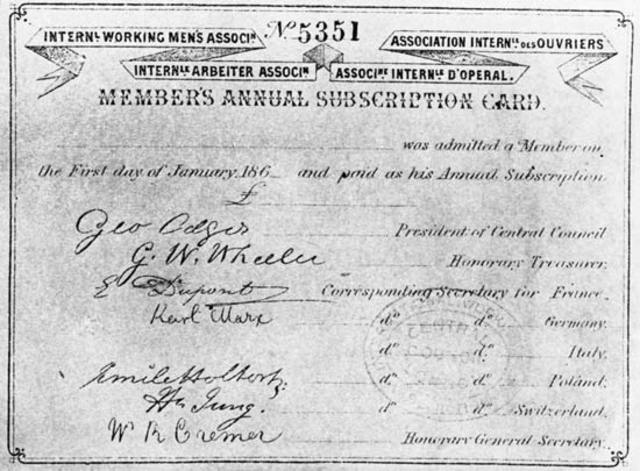 Nº 5351
INTERNL WORKING MEN'S ASSOCIN
ASSOCIATION INTERNLE DES OUVRIERS
INTERNLE ARBEITER ASSOCIN
ASSOCINE INTERNLE D'OPERAL.
MEMBER'S ANNUAL SUBSCRIPTION CARD.
was admitted a Member on
the First day of January, 186 and paid as his Annual Subscription
£
Geo Odger President of Central Council
G. W. Wheeler Honorary Treasurer.
E Dupont Corresponding Secretary for France.
Karl Marx do do Germany.
do do Italy.
Emile Holtorp. do do Poland.
Hn Jung. do do Switzerland.
W R Cremer Honorary General Secretary.